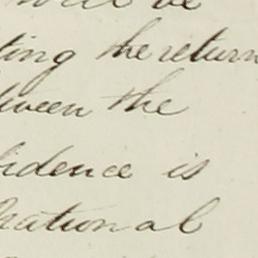 will be
ting the return
tween the
fidence is
national